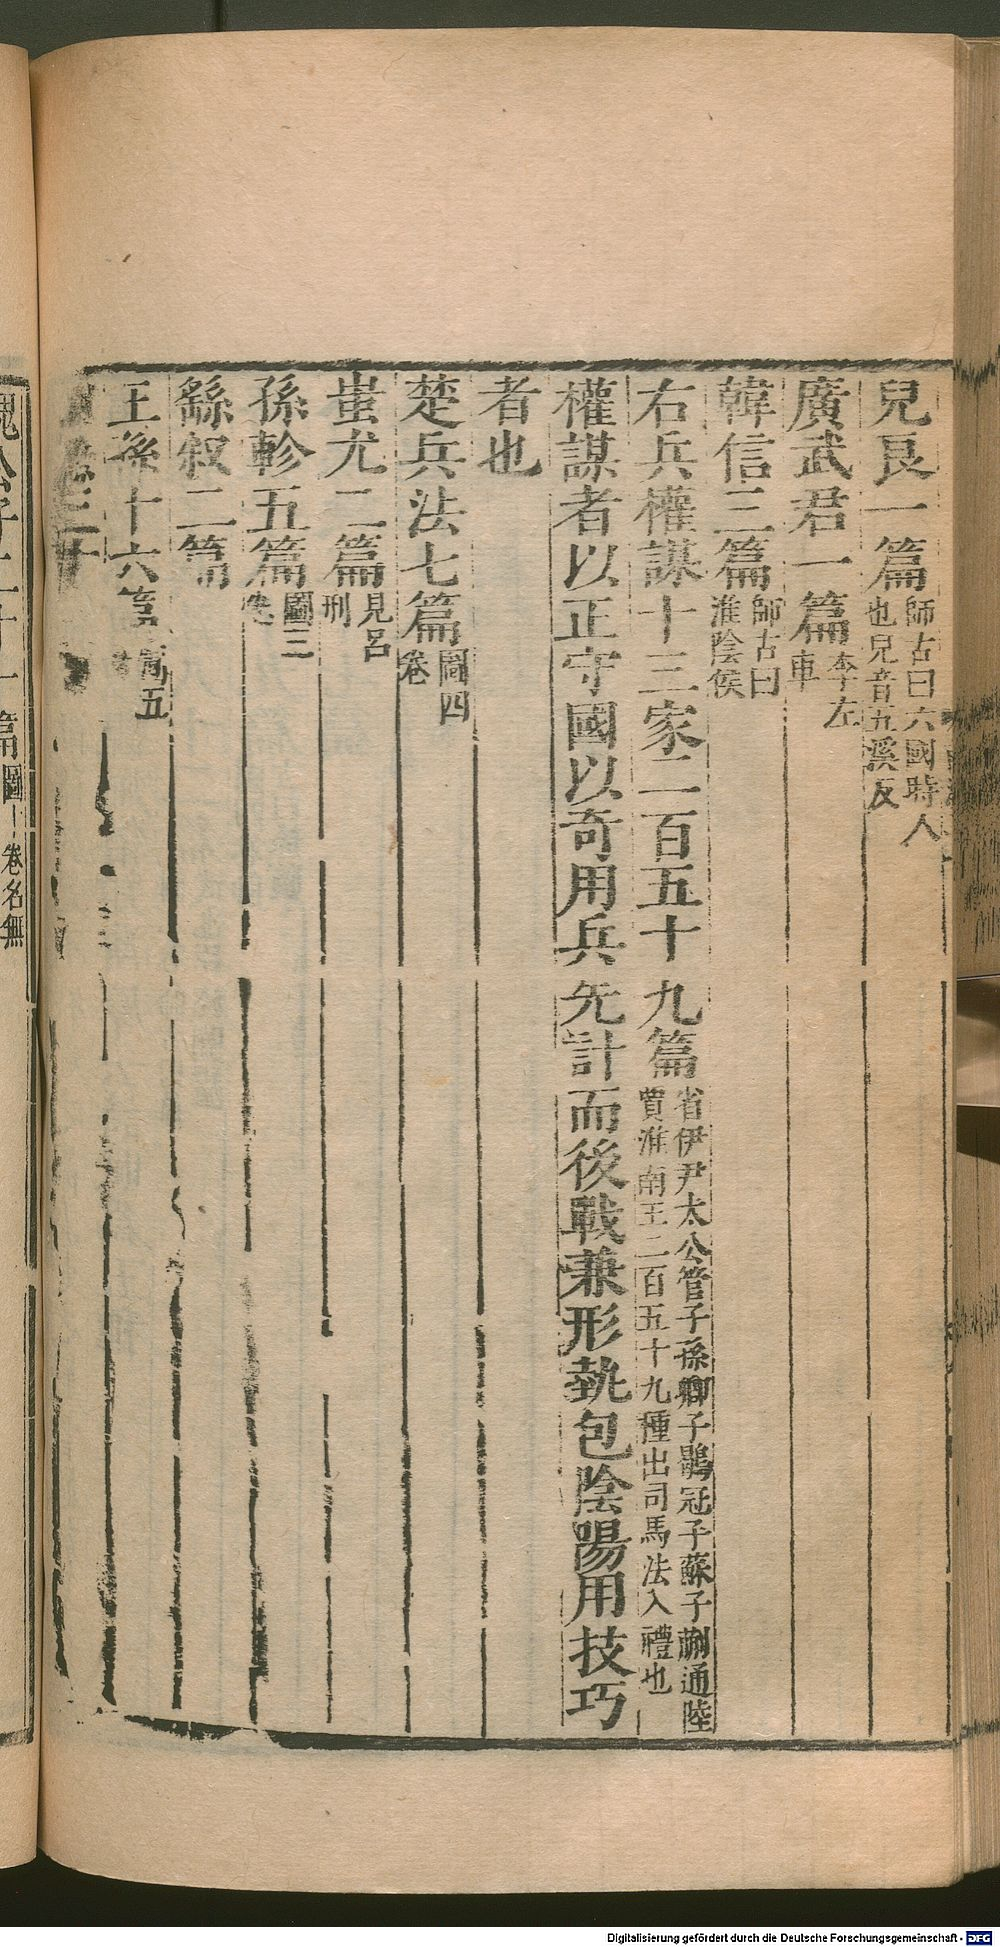 兒良一篇師古曰六國時人也兒音五溪反
廣武君一篇李左車
韓信三篇師古曰淮陰侯
右兵權謀十三家二百五十九篇省伊尹太公管子孫卿子鶡冠子蘇子蒯通陸賈淮南王二百五十九種出司馬法入禮也
權謀者以正守國以奇用兵先計而後戰兼形埶包陰陽用技巧
者也
楚兵法七篇圖四卷
蚩尤二篇見呂刑
孫軫五篇圖三卷
繇叙二篇
王孫十六篇圖五
魏公子二十一篇圖十卷名無
Digitalisierung gefördert durch die Deutsche Forschungsgemeinschaft - DFG